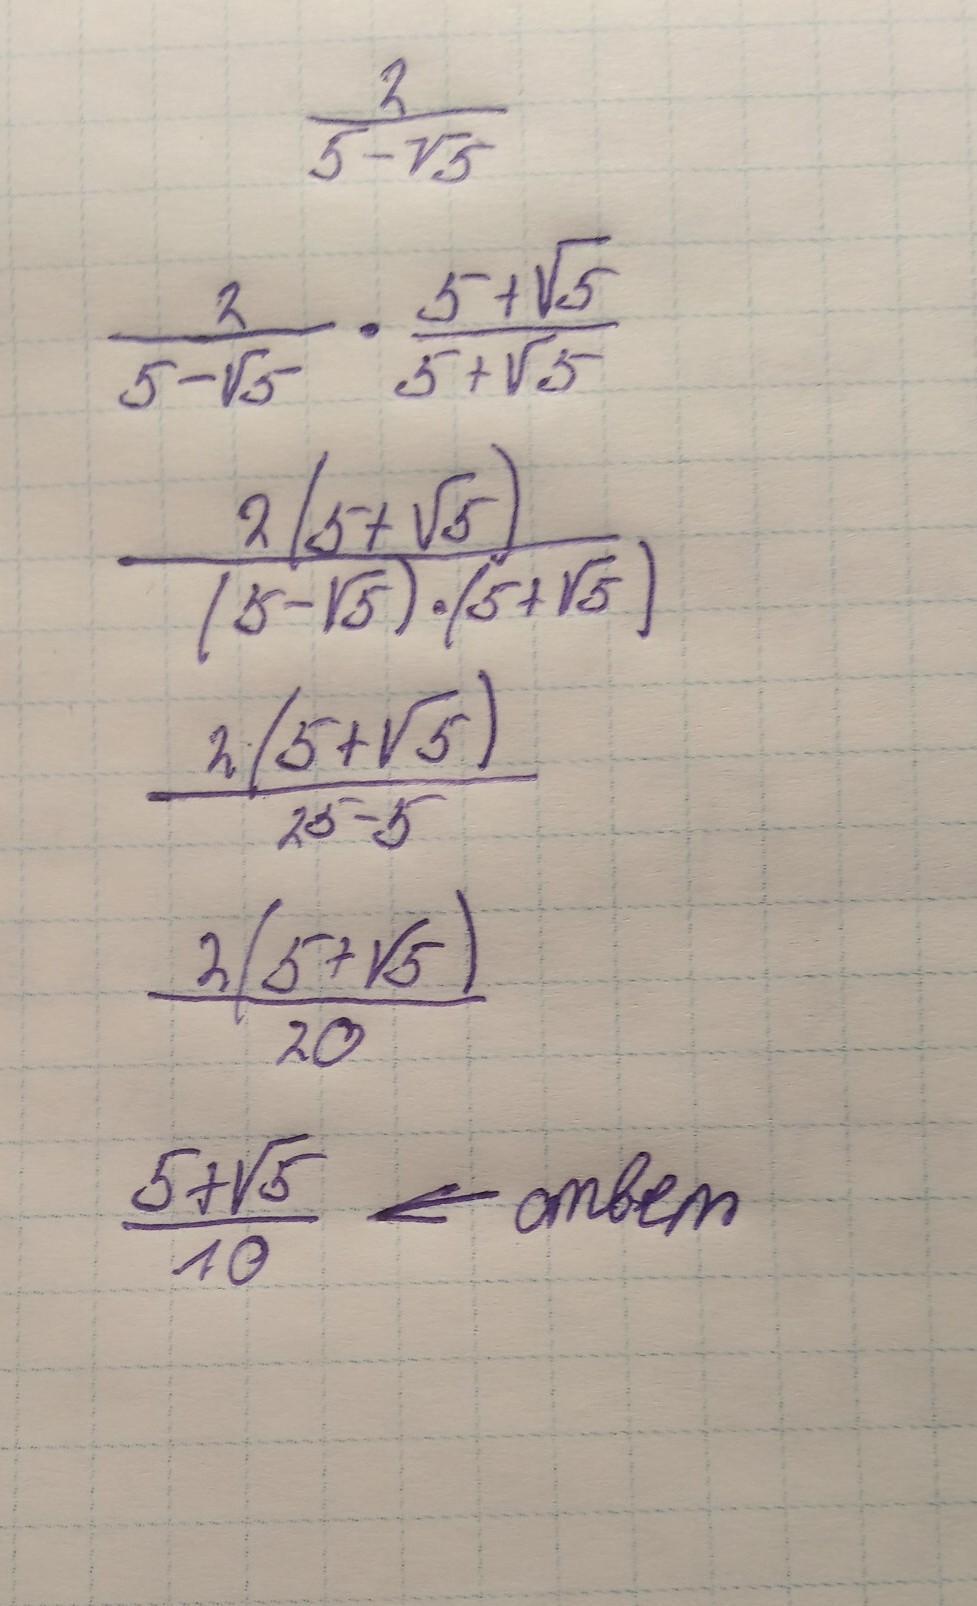 2
5-√5
2/(5-√5) · (5+√5)/(5+√5)
2(5+√5)
(5-√5)·(5+√5)
2(5+√5)
25-5
2(5+√5)
20
(5+√5)/10 ← ответ